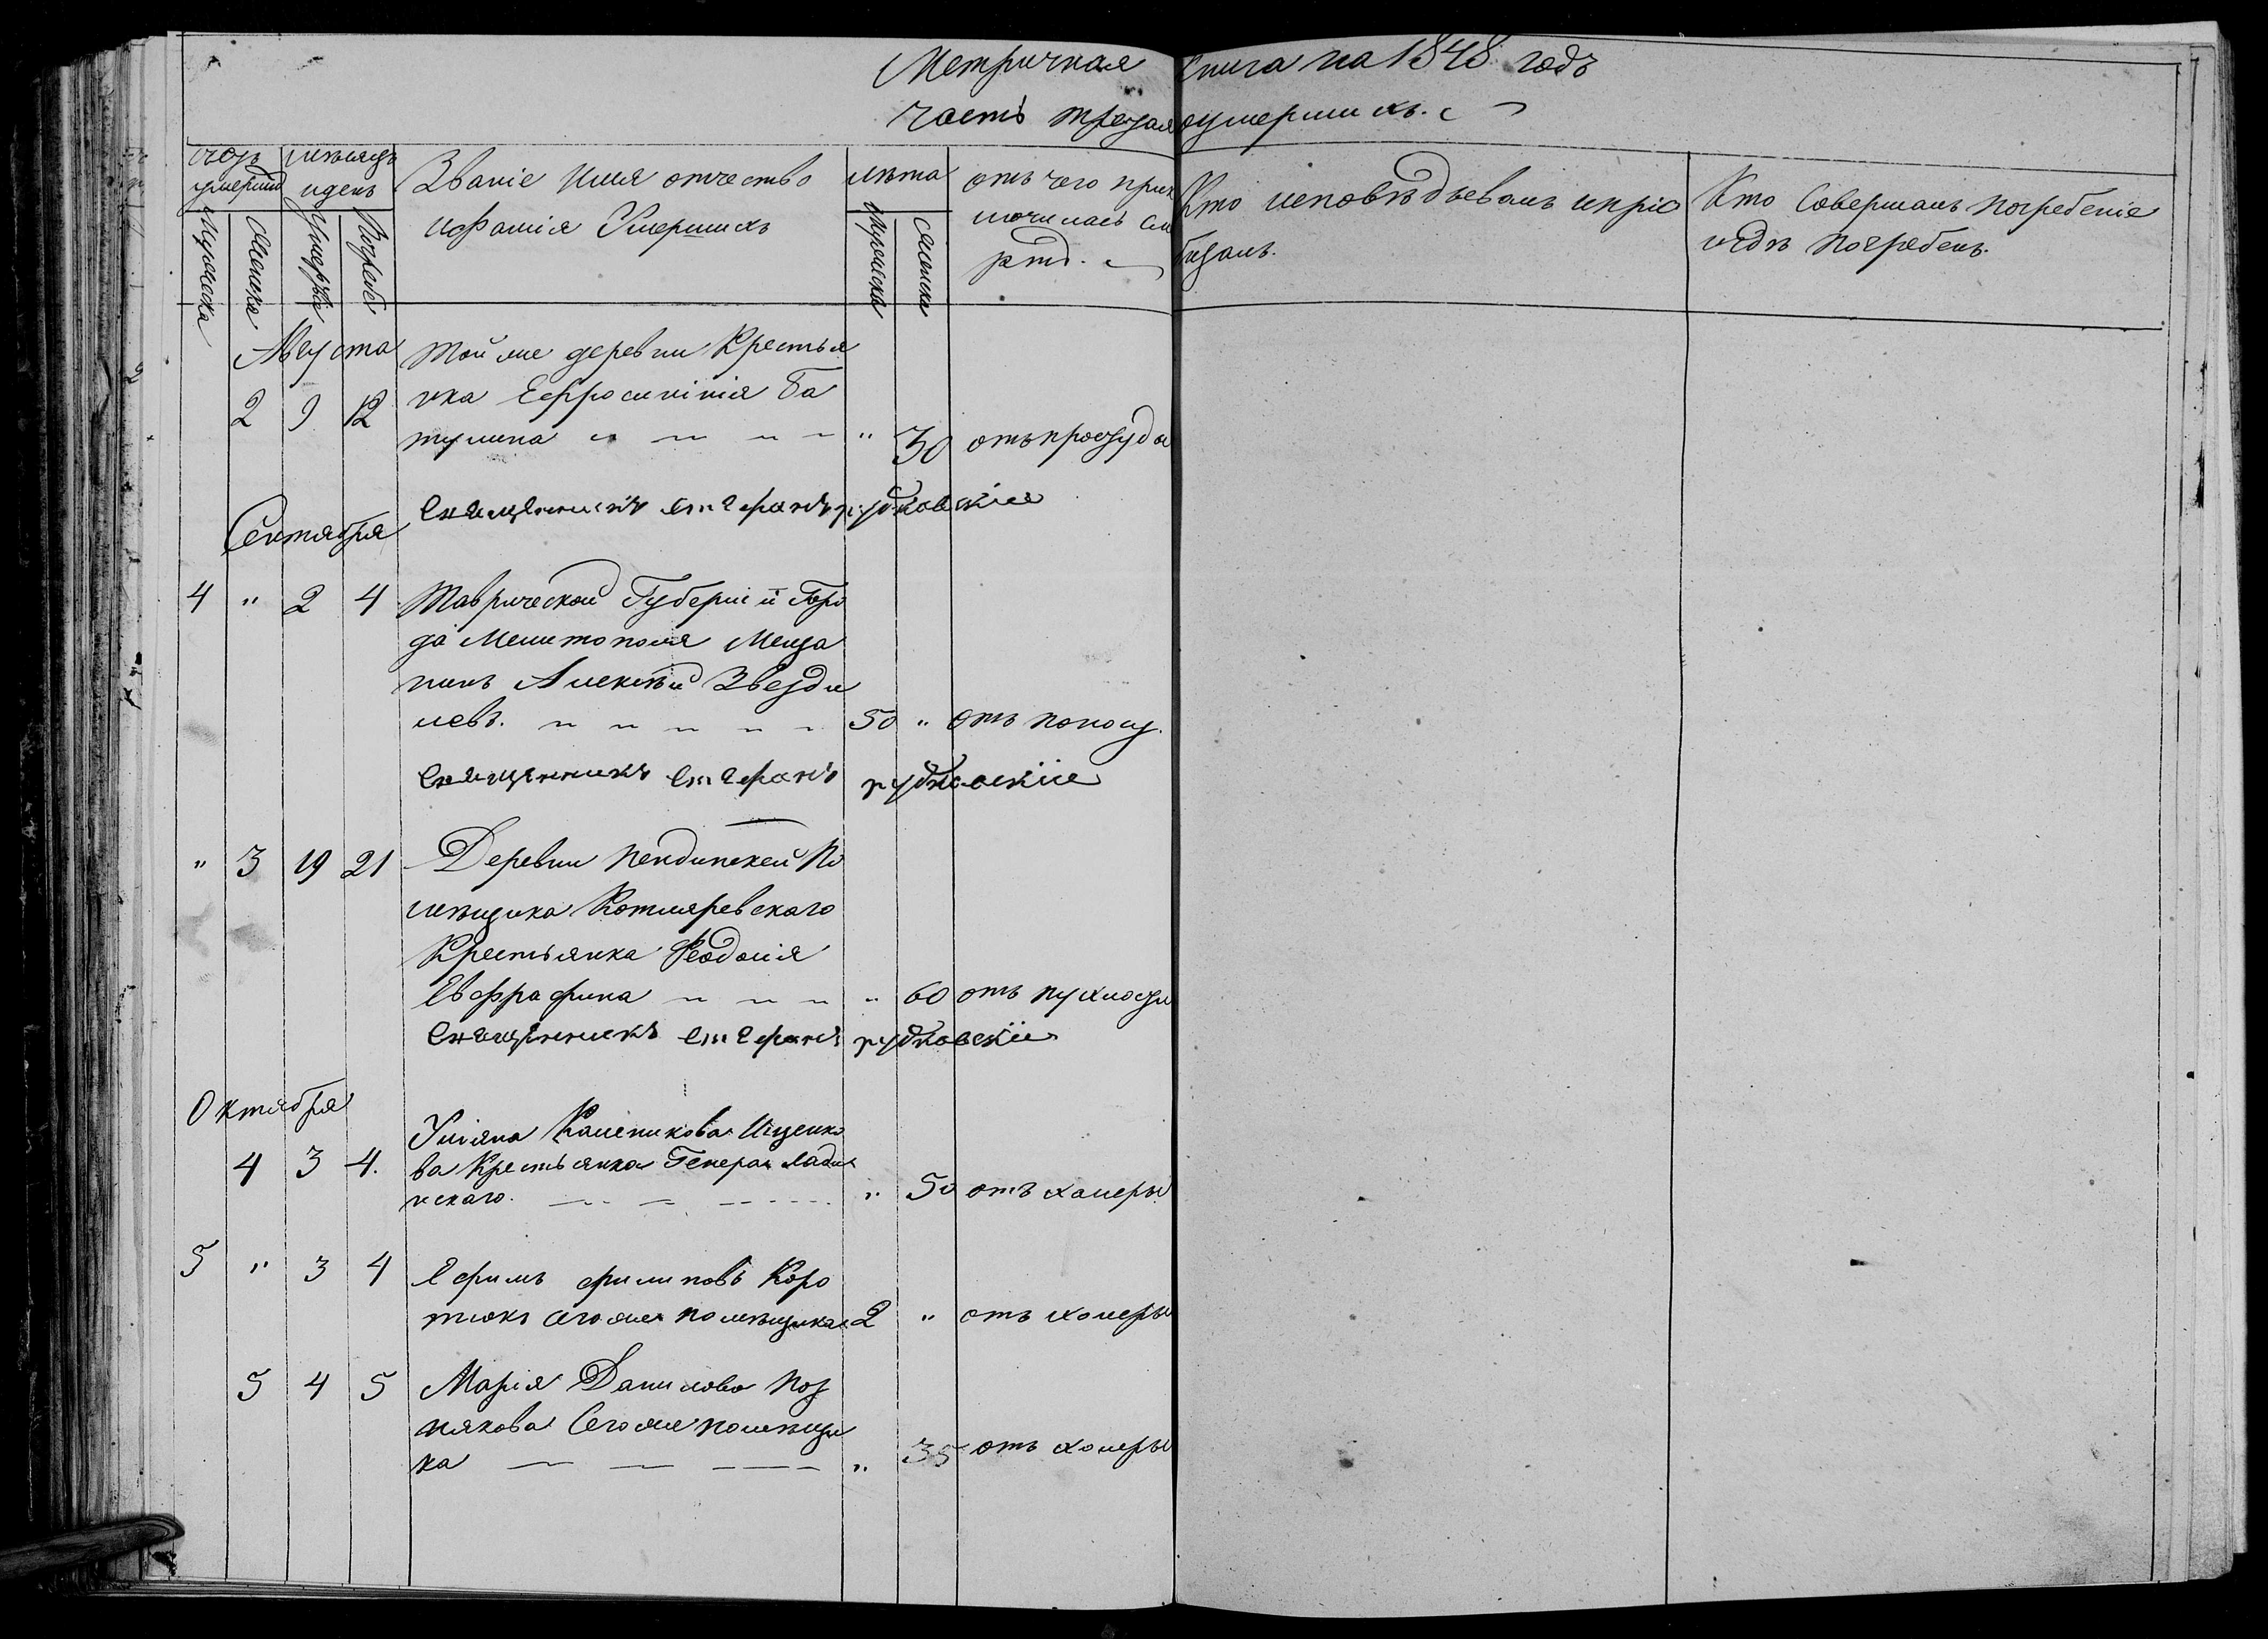 Метричкая книга на 1848 годъ
часть третая оумершихъ.
счетъ умершихъ
Мужеска
Женска
месяцъ и день
Умертвія
Погребе
Званіе Имя отчество
и Фамилія Умершихъ
лѣта
Мужеска
Женска
отъ чего прик
лючилась сме
рть.
Кто исповѣдывалъ и прiо
бщалъ.
Кто Совершалъ погребеніе
и гдѣ погребенъ.
Августа
Той же деревни Крестья
2 9 12 нка Ефросинінія Ба
тулина " 30 отъ простуды
Священникъ Стефанъ Рудковскіи
Сентября
4 " 2 4 Таврической Губерніи Горо
да Мелитополя Меща
нинъ Алексѣй Звезди
левъ. 50 " отъ поносу.
Священникъ Стефанъ Рудковскіи
" 3 19 21 Деревни Пендинекеи По
мѣщика Котляревскаго
Крестьянка Феодосія
Евфрафина " 60 отъ пухлости
Священникъ Стефанъ Рудковскіи
Октября
Уліяна Калепикова Ищенко
4 3 4. ва Крестьянка Генерал Ладин
нскаго. " 50 отъ холеры
5 " 3 4 Ефимъ Филиповъ Коро
тюкъ сего же помѣщика 2 " отъ холеры
5 4 5 Марія Данилова Поз
някова Сего же помѣщи
ка " 35 отъ холеры